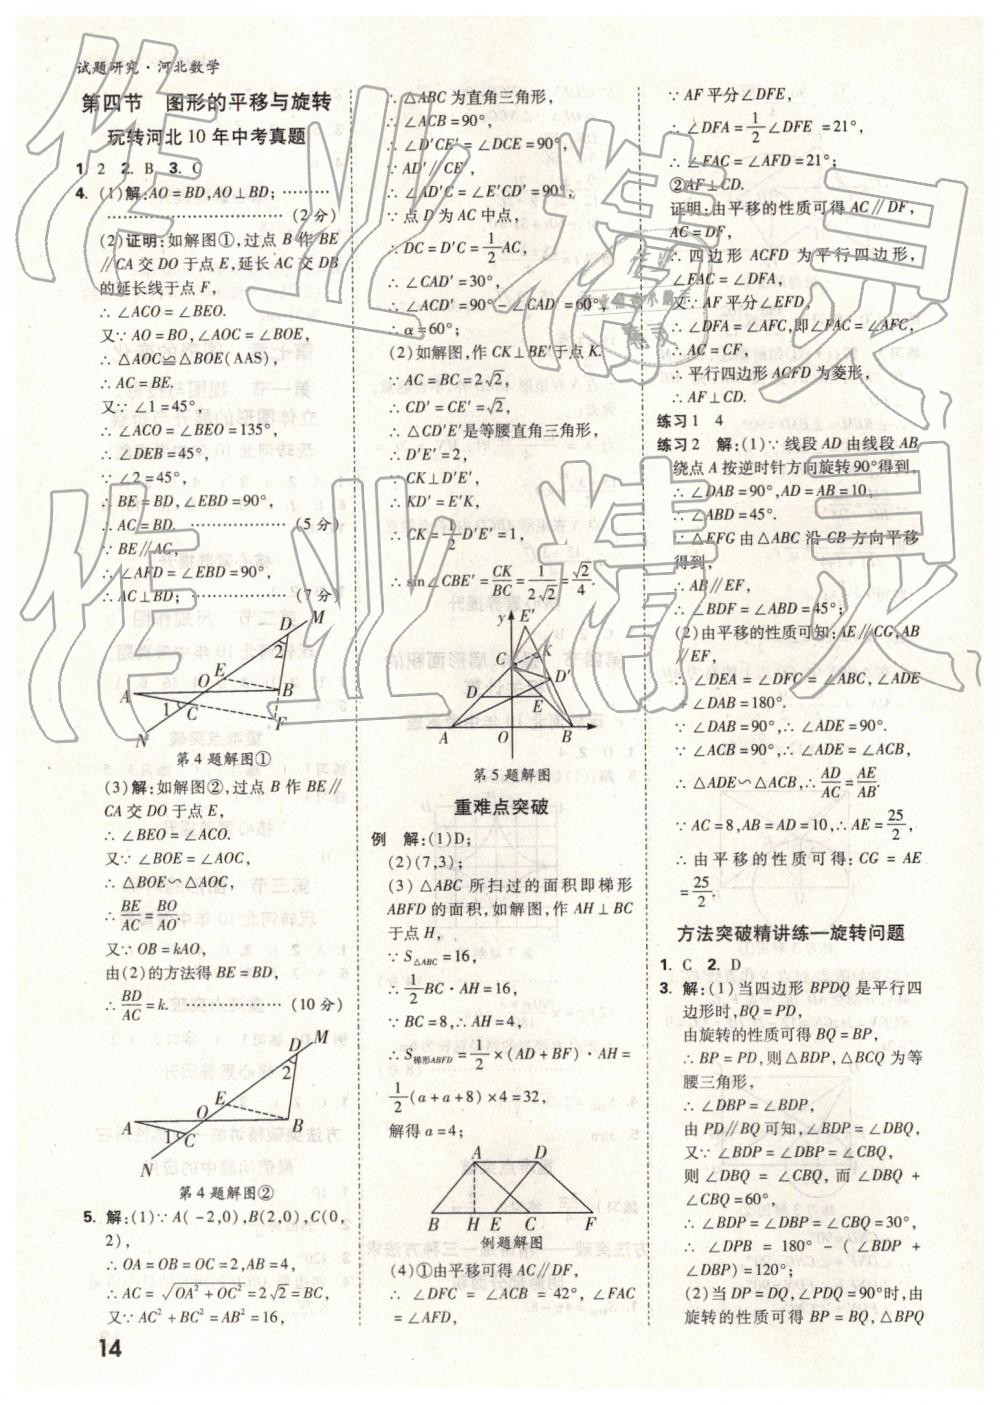 试题研究·河北数学
第四节 图形的平移与旋转
玩转河北10年中考真题
1. 2 2. B 3. C
4. (1)解:AO=BD,AO⊥BD; ………
……………………………… (2分)
(2)证明:如解图①,过点B作BE
∥CA交DO于点E,延长AC交DB
的延长线于点F,
∴∠ACO=∠BEO.
又∵AO=BO,∠AOC=∠BOE,
∴△AOC≌△BOE(AAS),
∴AC=BE.
又∵∠1=45°,
∴∠ACO=∠BEO=135°,
∴∠DEB=45°,
∵∠2=45°,
∴BE=BD,∠EBD=90°,
∴AC=BD. ……………… (5分)
∵BE∥AC,
∴∠AFD=∠EBD=90°,
∴AC⊥BD; ……………… (7分)
M
D
2
E
O
A
B
1
C
F
N
第4题解图①
(3)解:如解图②,过点B作BE∥
CA交DO于点E,
∴∠BEO=∠ACO.
又∵∠BOE=∠AOC,
∴△BOE∽△AOC,
∴BE/AC=BO/AO.
又∵OB=kAO,
由(2)的方法得BE=BD,
∴BD/AC=k. ……………… (10分)
M
D
2
E
O
A
B
1
C
N
第4题解图②
5. 解:(1)∵A(-2,0),B(2,0),C(0,
2),
∴OA=OB=OC=2,AB=4,
∴AC=√(OA²+OC²)=2√2=BC,
又∵AC²+BC²=AB²=16,
14
∴△ABC为直角三角形,
∴∠ACB=90°,
∴∠D'CE'=∠DCE=90°,
∵AD'∥CE',
∴∠AD'C=∠E'CD'=90°,
∵点D为AC中点,
∴DC=D'C=1/2AC,
∴∠CAD'=30°,
∴∠ACD'=90°-∠CAD'=60°,
∴α=60°;
(2)如解图,作CK⊥BE'于点K.
∵AC=BC=2√2,
∴CD'=CE'=√2,
∴△CD'E'是等腰直角三角形,
∴D'E'=2,
∵CK⊥D'E',
∴KD'=E'K,
∴CK=1/2D'E'=1,
∴sin∠CBE'=CK/BC=1/2√2=√2/4.
y
E'
K
C
D'
D
E
A
O
B
x
第5题解图
重难点突破
例 解:(1)D;
(2)(7,3);
(3)△ABC所扫过的面积即梯形
ABFD的面积,如解图,作AH⊥BC
于点H,
∵S△ABC=16,
∴1/2BC·AH=16,
∵BC=8,∴AH=4,
∴S梯形ABFD=1/2×(AD+BF)·AH=
1/2(a+a+8)×4=32,
解得a=4;
A D
B H E C F
例题解图
(4)①由平移可得AC∥DF,
∴∠DFC=∠ACB=42°,∠FAC
=∠AFD,
∵AF平分∠DFE,
∴∠DFA=1/2∠DFE=21°,
∴∠FAC=∠AFD=21°;
②AF⊥CD.
证明:由平移的性质可得AC∥DF,
AC=DF,
∴四边形ACFD为平行四边形,
∠FAC=∠DFA,
又∵AF平分∠EFD,
∴∠DFA=∠AFC,即∠FAC=∠AFC,
∴AC=CF,
∴平行四边形ACFD为菱形,
∴AF⊥CD.
练习1 4
练习2 解:(1)∵线段AD由线段AB
绕点A按逆时针方向旋转90°得到,
∴∠DAB=90°,AD=AB=10,
∴∠ABD=45°.
∵△EFG由△ABC沿CB方向平移
得到,
∴AB∥EF,
∴∠BDF=∠ABD=45°;
(2)由平移的性质可知:AE∥CG,AB
∥EF,
∴∠DEA=∠DFC=∠ABC,∠ADE
+∠DAB=180°.
∵∠DAB=90°,∴∠ADE=90°.
∵∠ACB=90°,∴∠ADE=∠ACB,
∴△ADE∽△ACB,∴AD/AC=AE/AB.
∵AC=8,AB=AD=10,∴AE=25/2,
∴由平移的性质可得:CG=AE
=25/2.
方法突破精讲练—旋转问题
1. C 2. D
3. 解:(1)当四边形BPDQ是平行四
边形时,BQ=PD,
由旋转的性质可得BQ=BP,
∴BP=PD,则△BDP,△BCQ为等
腰三角形,
∴∠DBP=∠BDP,
由PD∥BQ可知,∠BDP=∠DBQ,
又∵∠BDP=∠DBP=∠CBQ,
则∠DBQ=∠CBQ,而∠DBQ+
∠CBQ=60°,
∴∠BDP=∠DBP=∠CBQ=30°,
∴∠DPB=180°-(∠BDP+
∠DBP)=120°;
(2)当DP=DQ,∠PDQ=90°时,由
旋转的性质可得BP=BQ,△BPQ
作业精灵
作业精灵